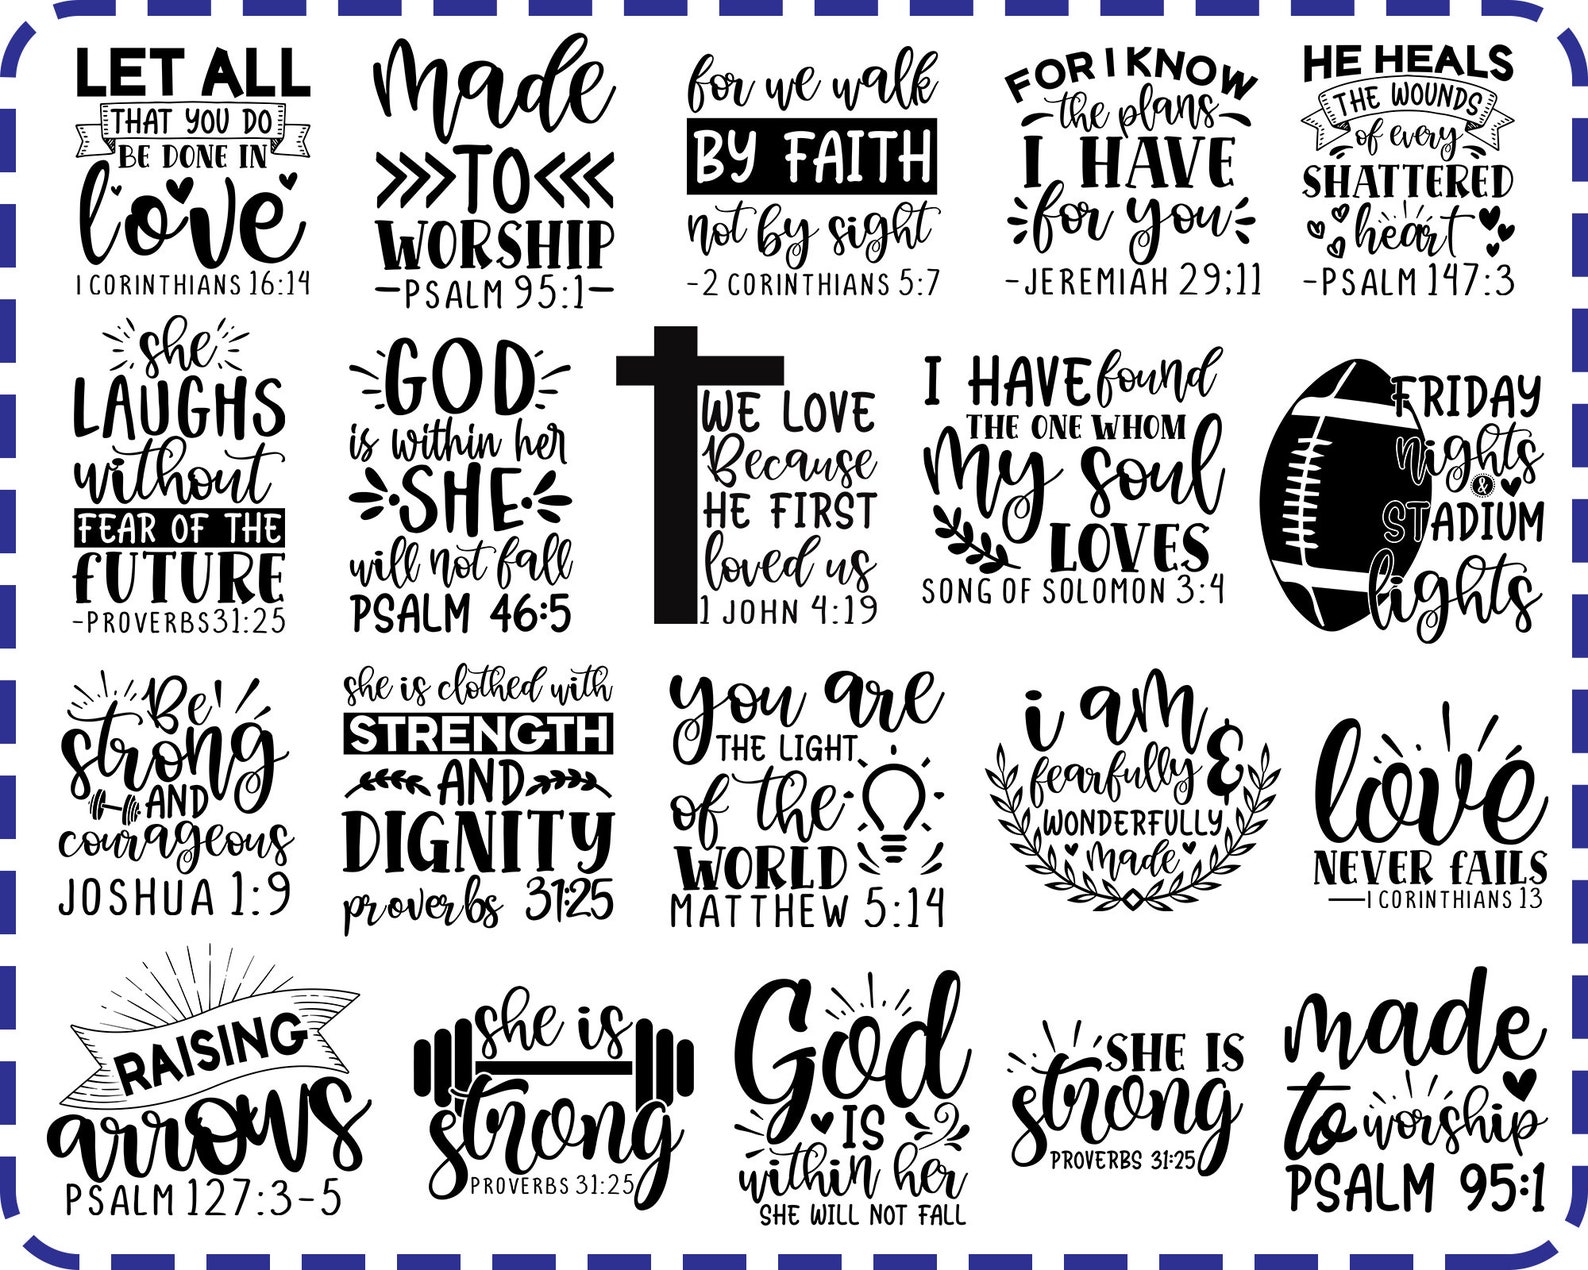 LET ALL
THAT YOU DO
BE DONE IN
love
1 CORINTHIANS 16:14
made
TO
WORSHIP
-PSALM 95:1-
for we walk
BY FAITH
not by sight
-2 CORINTHIANS 5:7
FOR I KNOW
the plans
I HAVE
for you
-JEREMIAH 29;11
HE HEALS
THE WOUNDS
of every
SHATTERED
heart
-PSALM 147:3
she
LAUGHS
without
FEAR OF THE
fUTURE
-PROVERBS31:25
GOD
is within her
SHE
will not fall
PSALM 46:5
WE LOVE
Because
HE FIRST
loved us
1 JOHN 4:19
I HAVE found
THE ONE WHOM
My soul
LOVES
SONG OF SOLOMON 3:4
FRIDAY
nights
&
STADIUM
lights
Be
strong
AND
courageous
JOSHUA 1:9
she is clothed with
STRENGTH
AND
DIGNITY
proverbs 31:25
you are
THE LIGHT
of the
WORLD
MATTHEW 5:14
i am
fearfully &
WONDERFULLY
made
love
NEVER fAILS
—1 CORINTHIANS 13
RAISING
arrows
PSALM 127:3-5
she is
strong
PROVERBS 31:25
God
IS
within her
SHE WILL NOT FALL
SHE IS
strong
PROVERBS 31:25
made
to worship
PSALM 95:1